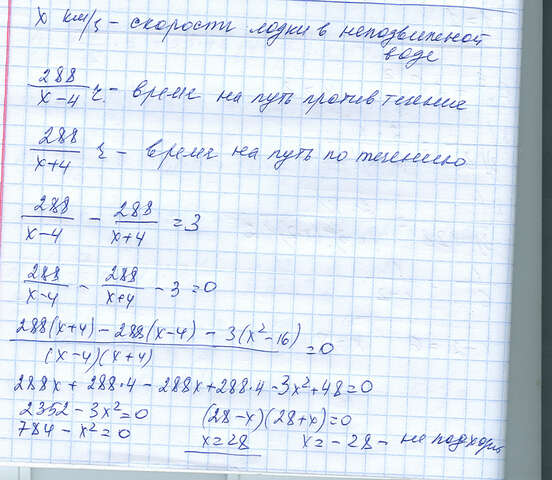 x км/ч - скорость лодки в неподвижной
воде
288/(x-4) ч. - время на путь против течение
288/(x+4) ч - время на путь по течению
288/(x-4) - 288/(x+4) = 3
288/(x-4) - 288/(x+4) - 3 = 0
(288(x+4) - 288(x-4) - 3(x²-16))/((x-4)(x+4)) = 0
288x + 288·4 - 288x + 288·4 - 3x² + 48 = 0
2352 - 3x² = 0 (28-x)(28+x) = 0
784 - x² = 0 x = 28 x = -28 - не подходь